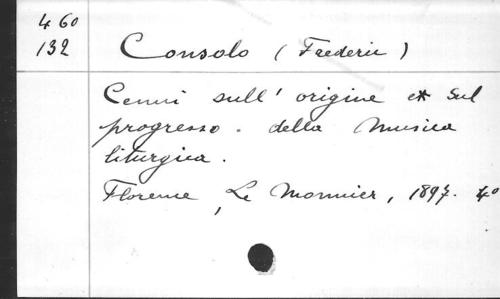 460
132
Consolo (Frederic)
Cenni sull' origine e* sul
progresso. della Musica
liturgica.
Florence, Le Monnier, 1897. 4º